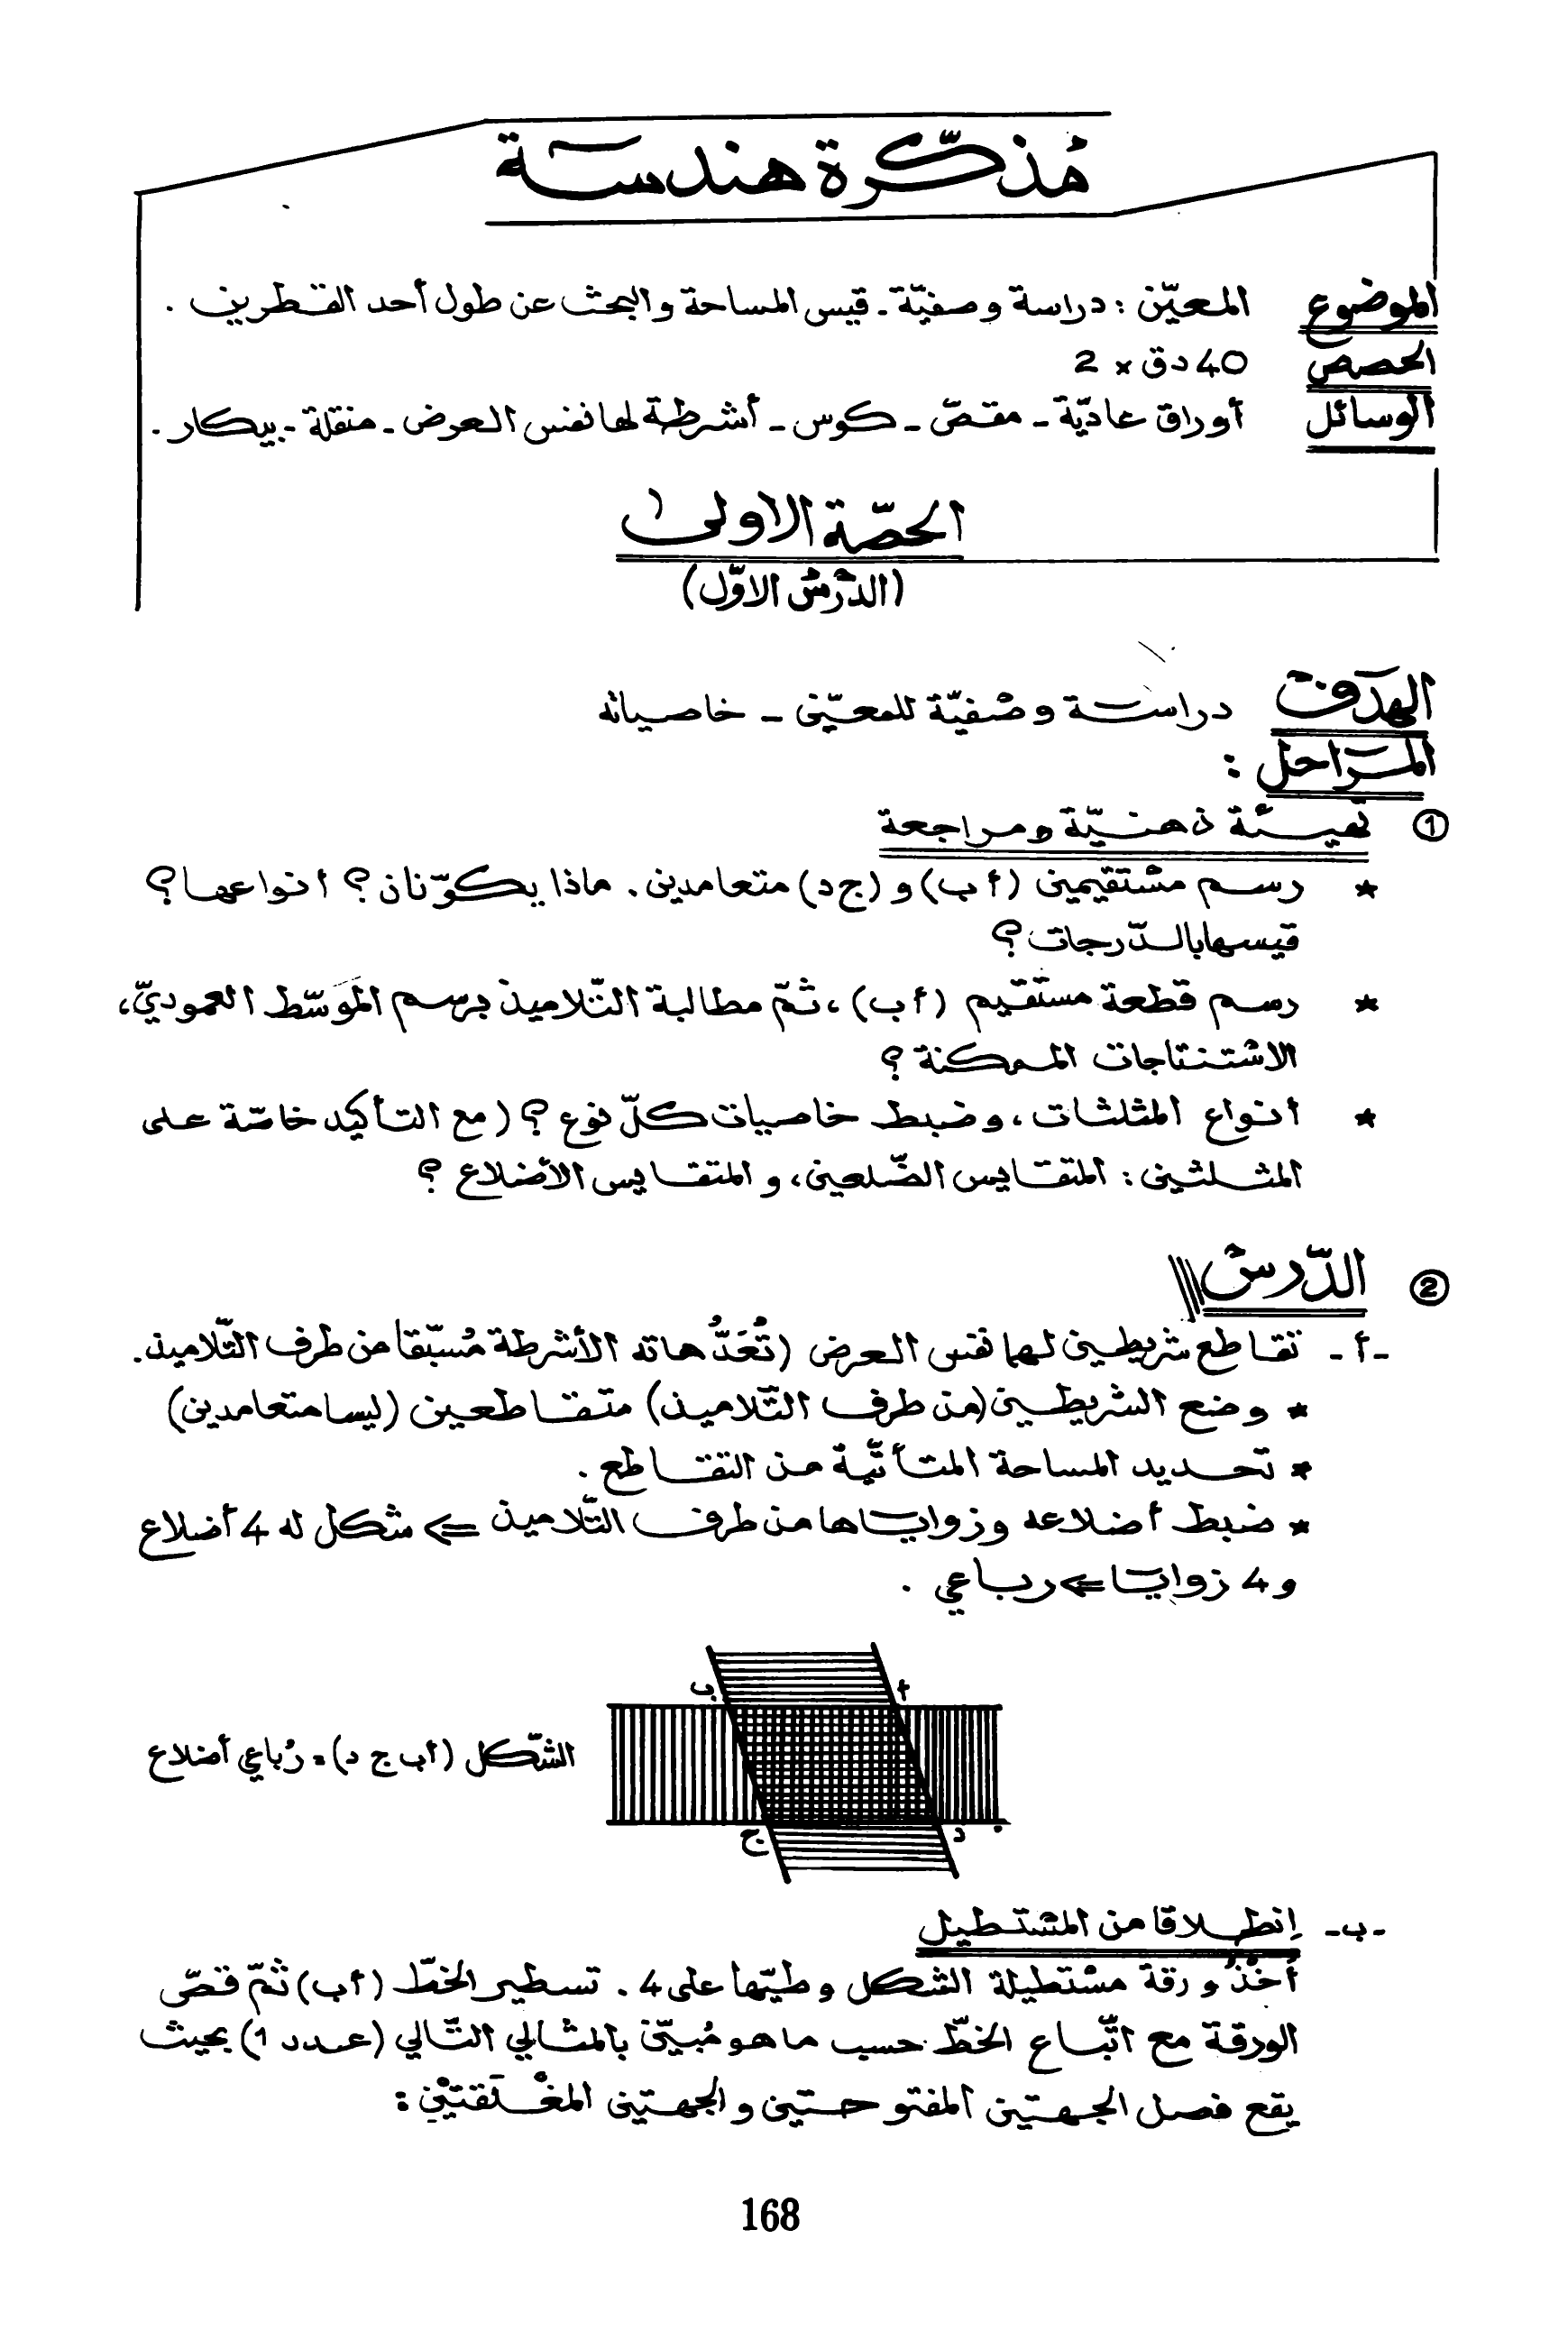 مُذكّرة هندسة
الموضوع المعيّن : دراسة وصفيّة - قيس المساحة والبحث عن طول أحد القطرين .
الحصص 40 دق × 2
الوسائل أوراق عاديّة - مقصّ - كوس - أشرطة لها نفس العرض - منقلة - بيكار .
الحصّة الاولى
(الدّرس الاوّل)
الهدف دراسة وصفيّة للمعيّن - خاصياته
المراحل :
① تهيئة ذهنيّة ومراجعة
* رسم مستقيمين (أ ب) و (ج د) متعامدين . ماذا يكوّنان ؟ أنواعها ؟
قيسها بالدّرجات ؟
* رسم قطعة مستقيم (أ ب) ، ثمّ مطالبة التّلاميذ برسم الموَسّط العموديّ،
الاستنتاجات الممكنة ؟
* أنواع المثلثات ، وضبط خاصيات كلّ نوع ؟ (مع التأكيد خاصّة على
المثلثين : المتقايس الضّلعين ، و المتقايس الأضلاع ؟
② الدّرس
- أ - تقاطع شريطين لهما نفس العرض (تُعَدُّ هاته الأشرطة مُسبّقا من طرف التّلاميذ.
* وضع الشريطين (من طرف التّلاميذ) متقاطعين (ليسا متعامدين)
* تحديد المساحة المتأتّية من التقاطع .
* ضبط أضلاعه وزواياها من طرف التّلاميذ ⇐ شكل له 4 أضلاع
و 4 زوايا ⇐ رباعي .
ب أ
الشّكل (أ ب ج د) = رُباعي أضلاع
ج د
- ب - إنطلاقا من المستطيل
أخْذُ ورقة مستطيلة الشكل وطيّها على 4 . تسطير الخطّ (أ ب) ثمّ قصّ
الورقة مع اتّباع الخطّ حسب ما هو مُبيّن بالمثالي التّالي (عدد 1) بحيث
يقع فصل الجهتين المفتوحتين والجهتين المغْلَقتيْن :
168